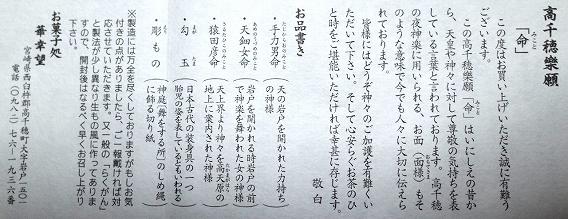 高千穂樂願
「命」
みこと
この度はお買い上げいただき誠に有難う
ございます。
この高千穂樂願「命」はいにしえの昔か
ら、天皇や神々に対して尊敬の気持ちを表
している言葉と言われております。高千穂
の夜神楽に用いられる、お面（面様）もそ
のような意味で今でも人々に大切に伝えら
れております。
皆様にはどうぞ神々のご加護を有難くい
ただいて下さい。そして心安らぐお茶のひ
と時をご堪能いただければ幸甚に存じます。
敬白
お品書き
・手力男命　天の岩戸を開かれた力持ち
の神様
・天鈿女命　岩戸を開かれる時岩戸の前
で神楽を舞われた女の神様
・猿田彦命　天上界より神々を高天原の
地上に案内された神様
・勾玉　日本古代の装身具の一つ
胎児の姿を表しているともいわれる
・彫もの　神庭（舞をする所）のしめ縄
に飾る切り紙
※製造には万全を尽くしておりますがもしお気
付きの点がありましたら、ご一報戴ければ対
応させていただきます。又一般の「らくがん」
と製法が少し異なり生もの風に作ってありま
すので、開封後はなるべく早くお召し上がり
下さい。
お菓子処
華幸望
宮崎県西臼杵郡高千穂町大字岩戸一五〇
電話（〇九八二）七六ー一九三六番